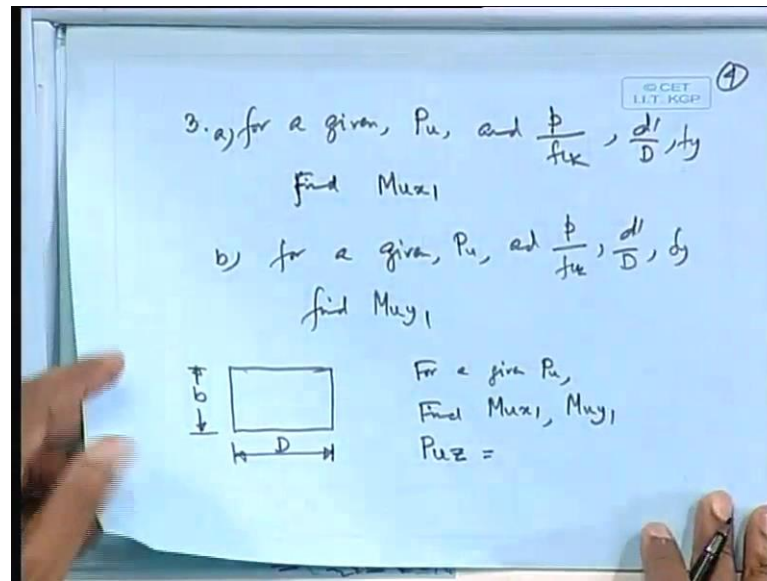 4
© CET
I.I.T. KGP
3. a) for a given, Pu, and p/fck, d'/D, fy
Find Mux1
b) for a given, Pu, ad p/fck, d'/D, fy
find Muy1
b
D
For a given Pu,
Find Mux1, Muy1
Puz =